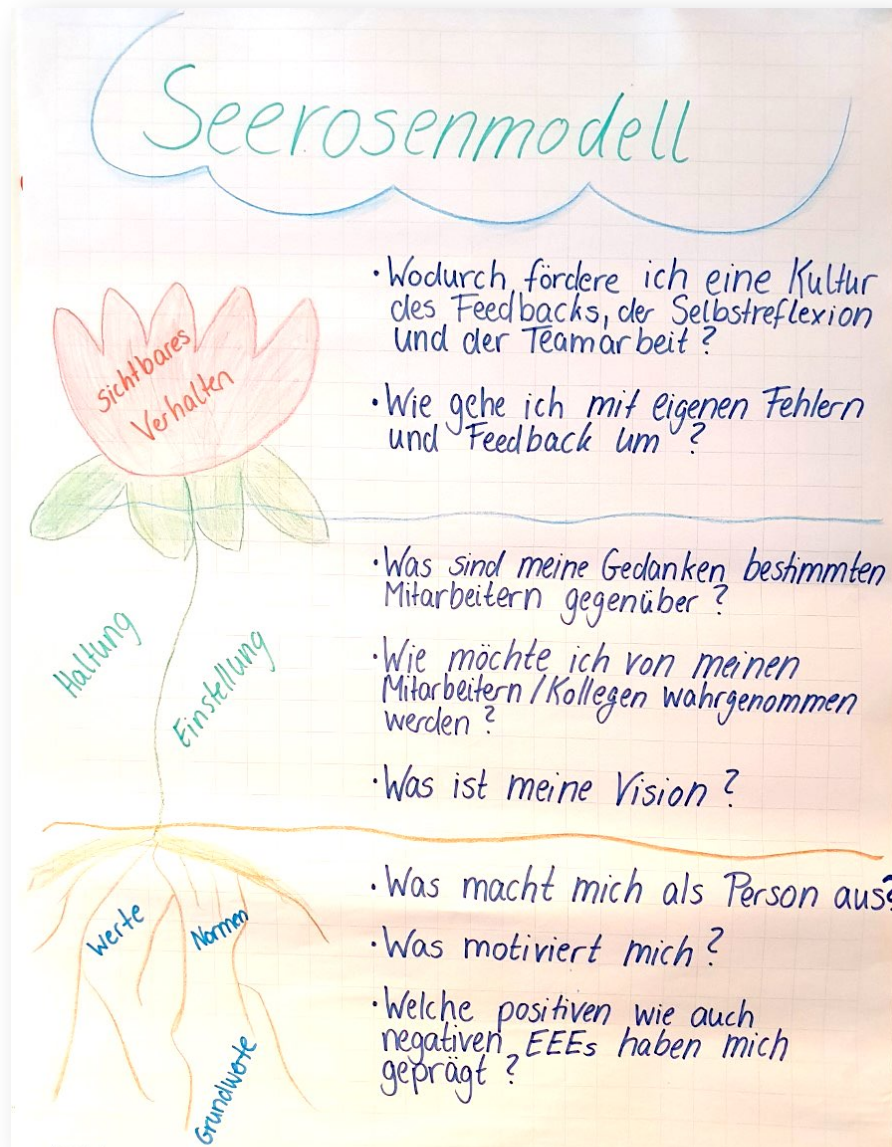 Seerosenmodell
sichtbares
Verhalten
· Wodurch fördere ich eine Kultur
des Feedbacks, der Selbstreflexion
und der Teamarbeit?
· Wie gehe ich mit eigenen Fehlern
und Feedback um?
Haltung
Einstellung
· Was sind meine Gedanken bestimmten
Mitarbeitern gegenüber?
· Wie möchte ich von meinen
Mitarbeitern/Kollegen wahrgenommen
werden?
· Was ist meine Vision?
Werte
Normen
Grundwerte
· Was macht mich als Person aus?
· Was motiviert mich?
· Welche positiven wie auch
negativen EEEs haben mich
geprägt?